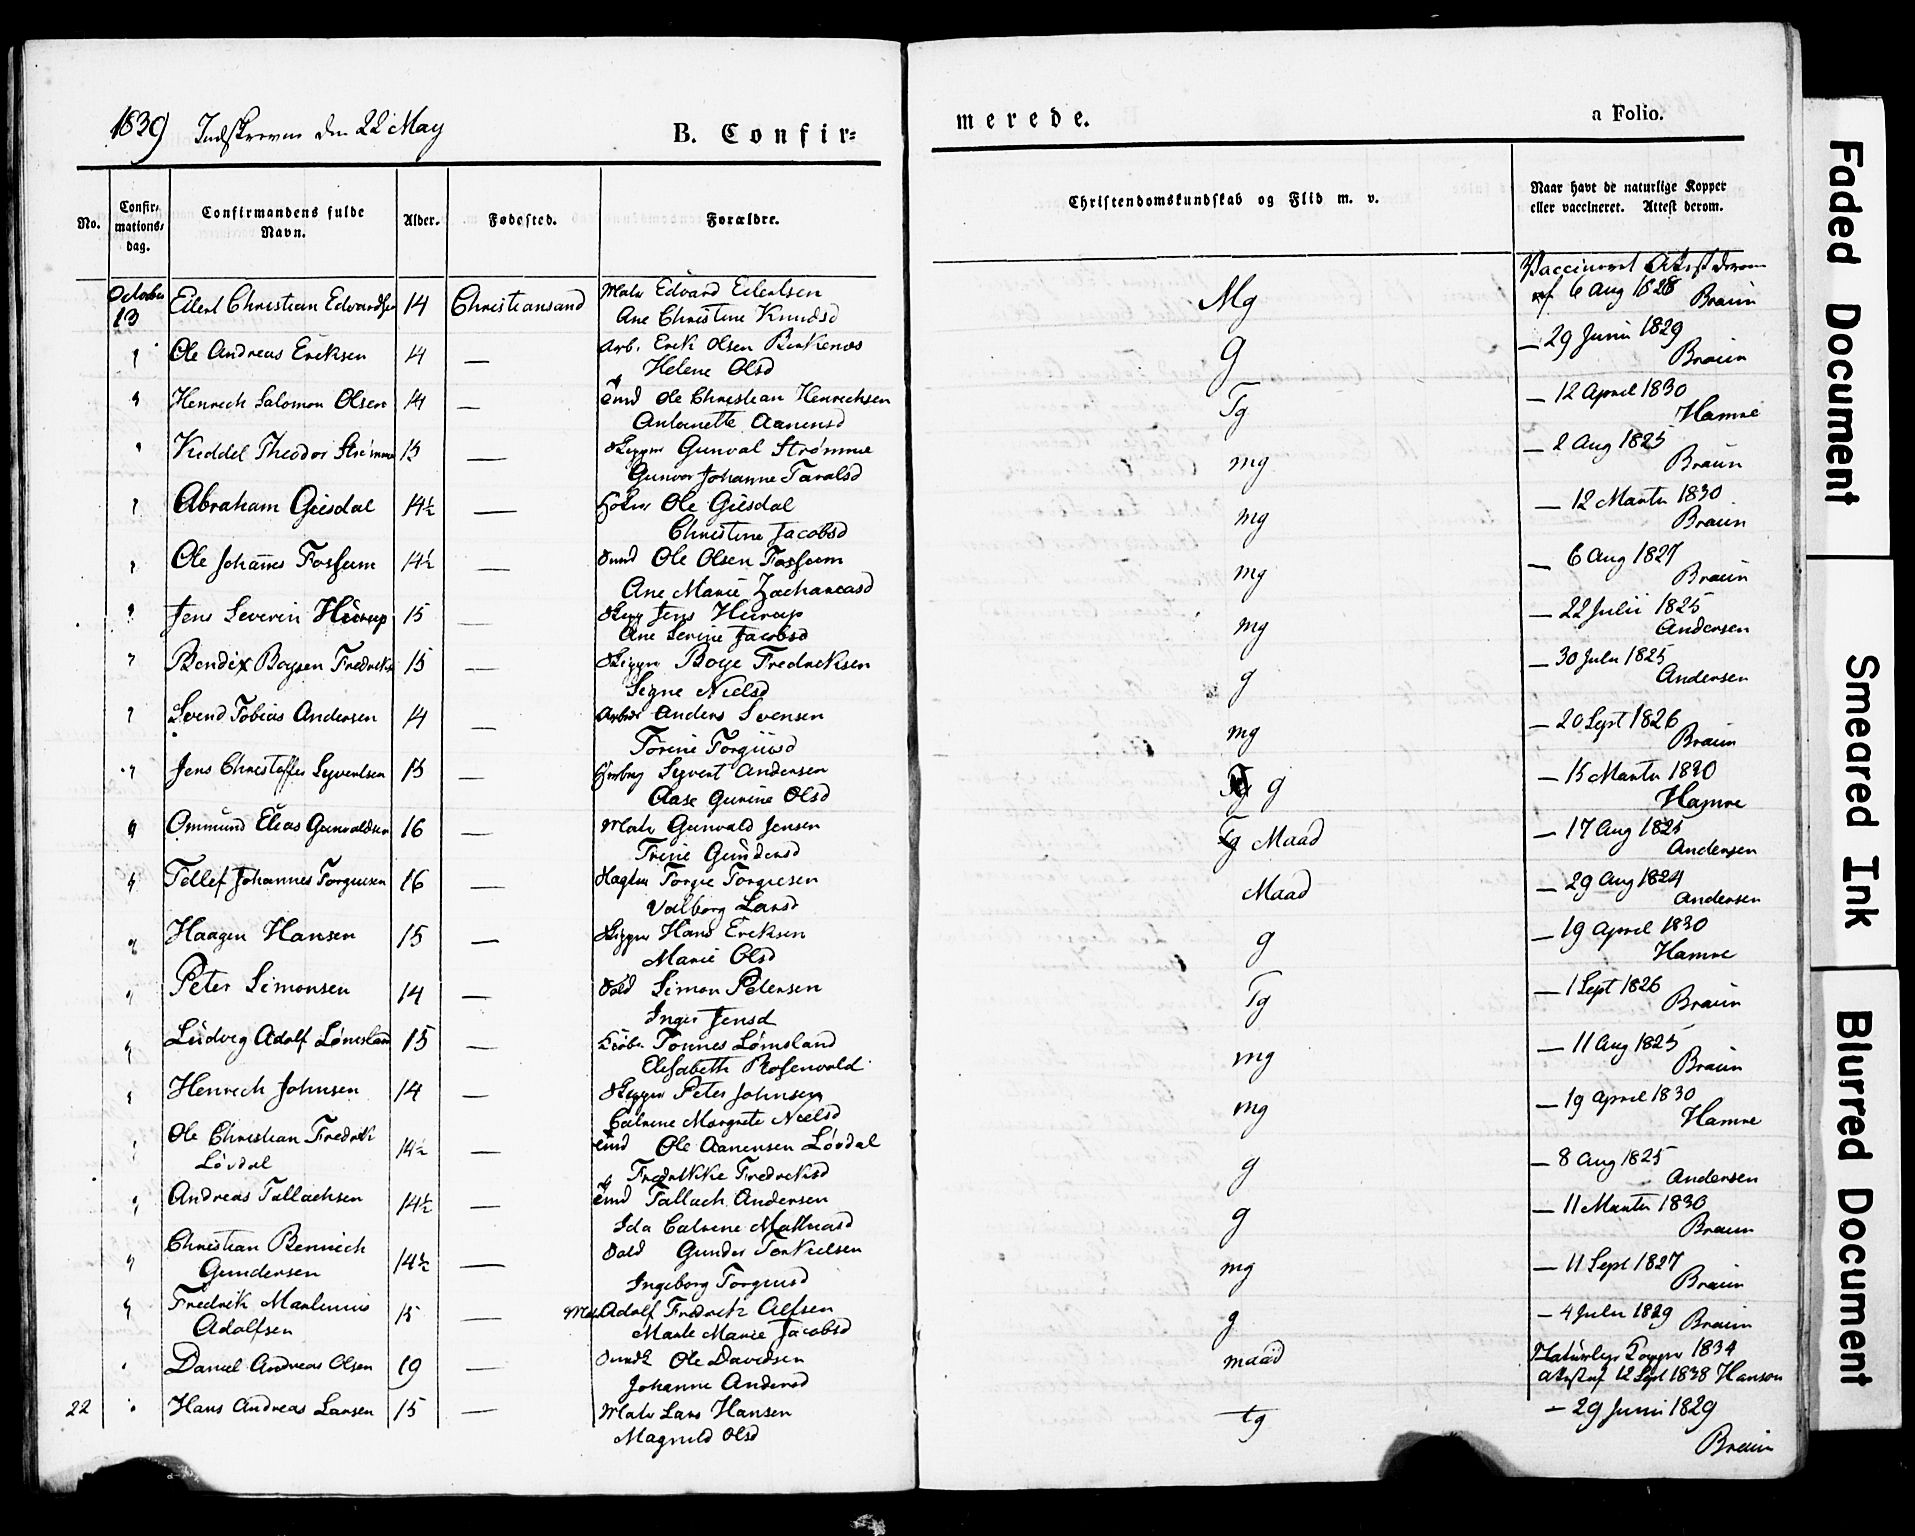 1839 Indskreven den 22 May
B. Confir-
merede.
a Folio.
No.
Confir-
mations-
dag.
Confirmandens fulde
Navn.
Alder.
Fødested.
Forældre.
Christendomskundskab og Flid m. v.
Naar havt de naturlige Kopper
eller vaccineret. Attest derom.
October 13 Eilert Christian Edvardsen 14 Christiansand Matr Edvard Eilertsen Mg Vaccineret Attest derom
Ane Christine Knudsd af 6 Aug 1828 Braün
" Ole Andreas Ericksen 14 — Arb. Erik Olsen Birkenæs g — 29 Junii 1829
Helene Olsd Braün
" Henrich Salomon Olsen 14 — Ole Christian Henrichsen Tg — 12 April 1830
Antonette Aanensd Hamre
" Keddel Theodor Strømme 15 — Skipper Gunval Strømme mg — 2 Aug 1825
Gunvor Johanne Taralsd Braün
" Abraham Giesdal 14½ — Ole Giesdal mg — 12 Martii 1830
Christine Jacobsd Braün
" Ole Johañes Fossum 14½ — Ole Olsen Fossum mg — 6 Aug 1827
Ane Marie Zachariasd Braün
" Jens Severin Hürup 15 — Skipp Jens Hürup mg — 22 Julii 1825
Ane Serine Jacobsd Andersen
" Bendix Boysen Fredriks 15 — Skipper Boye Fredreksen g — 30 Julii 1825
Signe Nielsd Andersen
" Svend Tobias Andersen 14 — Arbm Anders Svensen mg — 20 Sept 1826
Torine Torgiusd Braün
" Jens Christoffer Syvertsen 15 — Syvert Andersen g — 15 Martii 1830
Aase Gurine Olsd Hamre
" Ommund Elias Gunvaldsen 16 — Matr Gunvald Jensen Tg Maad — 17 Aug 1825
Trine Gundersd Andersen
" Tellef Johannes Torgiusen 16 — Torgie Torgiesen Maad — 29 Aug 1824
Valborg Larsd Andersen
" Haagen Hansen 15 — Skipper Hans Ericksen g — 19 April 1830
Marie Olsd Hamre
" Peter Simonsen 14 — Simon Petersen Tg — 1 Sept 1826
Inger Jensd Braün
" Ludvig Adolf Lømsland 15 — Tonnes Lømsland mg — 11 Aug 1825
Elisabeth Rosenvold Braün
" Henrich Johnsen 14 — Skipper Peter Johnsen mg — 19 April 1830
Catrine Margrete Nielsd Hamre
" Ole Christian Fredrik 14½ — Ole Aanensen Løvdal g — 8 Aug 1825
Løvdal Fredrikke Fredriksd Andersen
" Andreas Tallachsen 14½ — Tallach Andersen g — 11 Martii 1830
Ida Catrine Mathiasd Braün
" Christian Bennich 14½ — Gunder Torkielsen mg — 11 Sept 1827
Gundersen Ingeborg Torgiusd Braün
" Fredrik Martinius 15 — Matr Adolf Fredrik Alfsen g — 4 Julii 1829 Braün
Adolfsen Marte Marie Jacobsd
" Daniel Andreas Olsen 19 — Ole Davidsen maad Naturlige Kopper 1834
Johanne Andersd Attest af 12 Sept 1838 Hanson
22 " Hans Andreas Larsen 15 — Matr Lars Hansen tg — 29 Junii 1829
Magnild Olsd Braün
Faded Document
Smeared Ink
Blurred Document